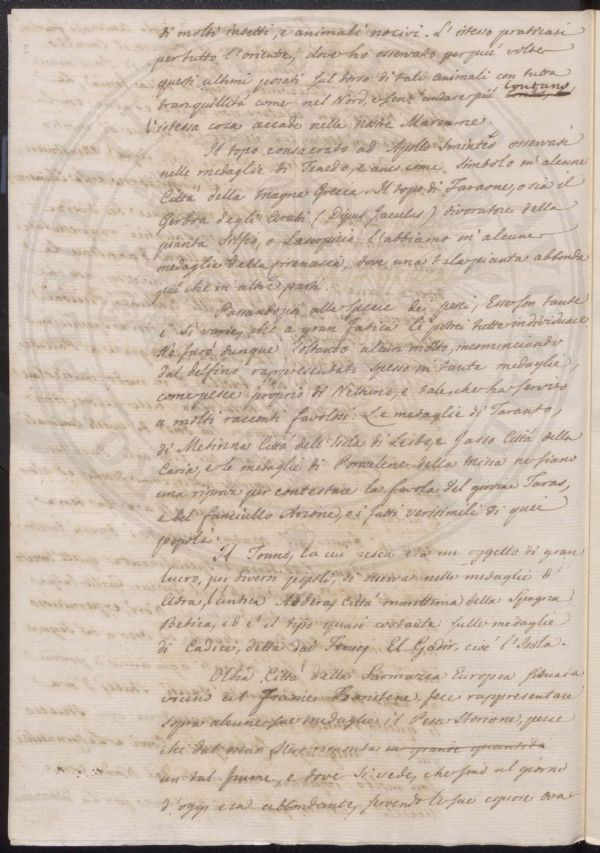 di molti insetti, e animali nocivi. L'istesso praticasi
per tutto l'oriente, dove ho osservato per più volte
questi ultimi posati sul dorso di tali animali con tutta
tranquillità come nel Nord, e senz'andare più lontano
l'istessa cosa accade nelle nostre Maremme.
Il topo consacrato ad Apollo Sminteo osservasi
nelle medaglie di Tenedo, e anco come simbolo in alcune
Città della Magna Grecia. Il topo di Faraone, o sia il
Gerboa degli Arabi (Dipus Jaculus) divoratore della
pianta Silfio, o Laserpizio l'abbiamo in alcune
medaglie della Cirenaica, dove una tale pianta abbonda
più che in altre parti.
Passando poi alla specie dei pesci, Esse son tante
e si varie, che a gran fatica le potrei tutte individuare
Ne farò dunque soltanto alcun molto, incominciando
dal delfino rappresentato spesso in tante medaglie,
come pesce proprio di Nettuno, e tale che ha servito
a molti racconti favolosi. Le medaglie di Taranto,
di Metinna Città dell'Isola di Lesbo, e Jasso Città della
Caria, e le medaglie di Poroselene della Misia ne siano
una riprova per contestare la favola del giovine Taras,
e del fanciullo Arione, o i fatti verisimili di quei
popoli.
Il Tonno, la cui pesca era un oggetto di gran
lucro, per diversi popoli, si osserva nelle medaglie d'
Adra, l'antica Abdera, Città marittima della Spagna
Betica, ed è il tipo quasi costante sulle medaglie
di Cadice, detta dai Fenicj El Gadir, cioè l'Isola.
Olbia Città della Sarmazia Europea situata
vicino al fiume Boristene, fece rappresentare
sopra alcune sue medaglie il Pesce Storione, pesce
che dal mar Nero rimonta in grande quantità
un tal fiume, e dove si vede, che sino al giorno
d'oggi era abbondante, servendo le sue copiose ova